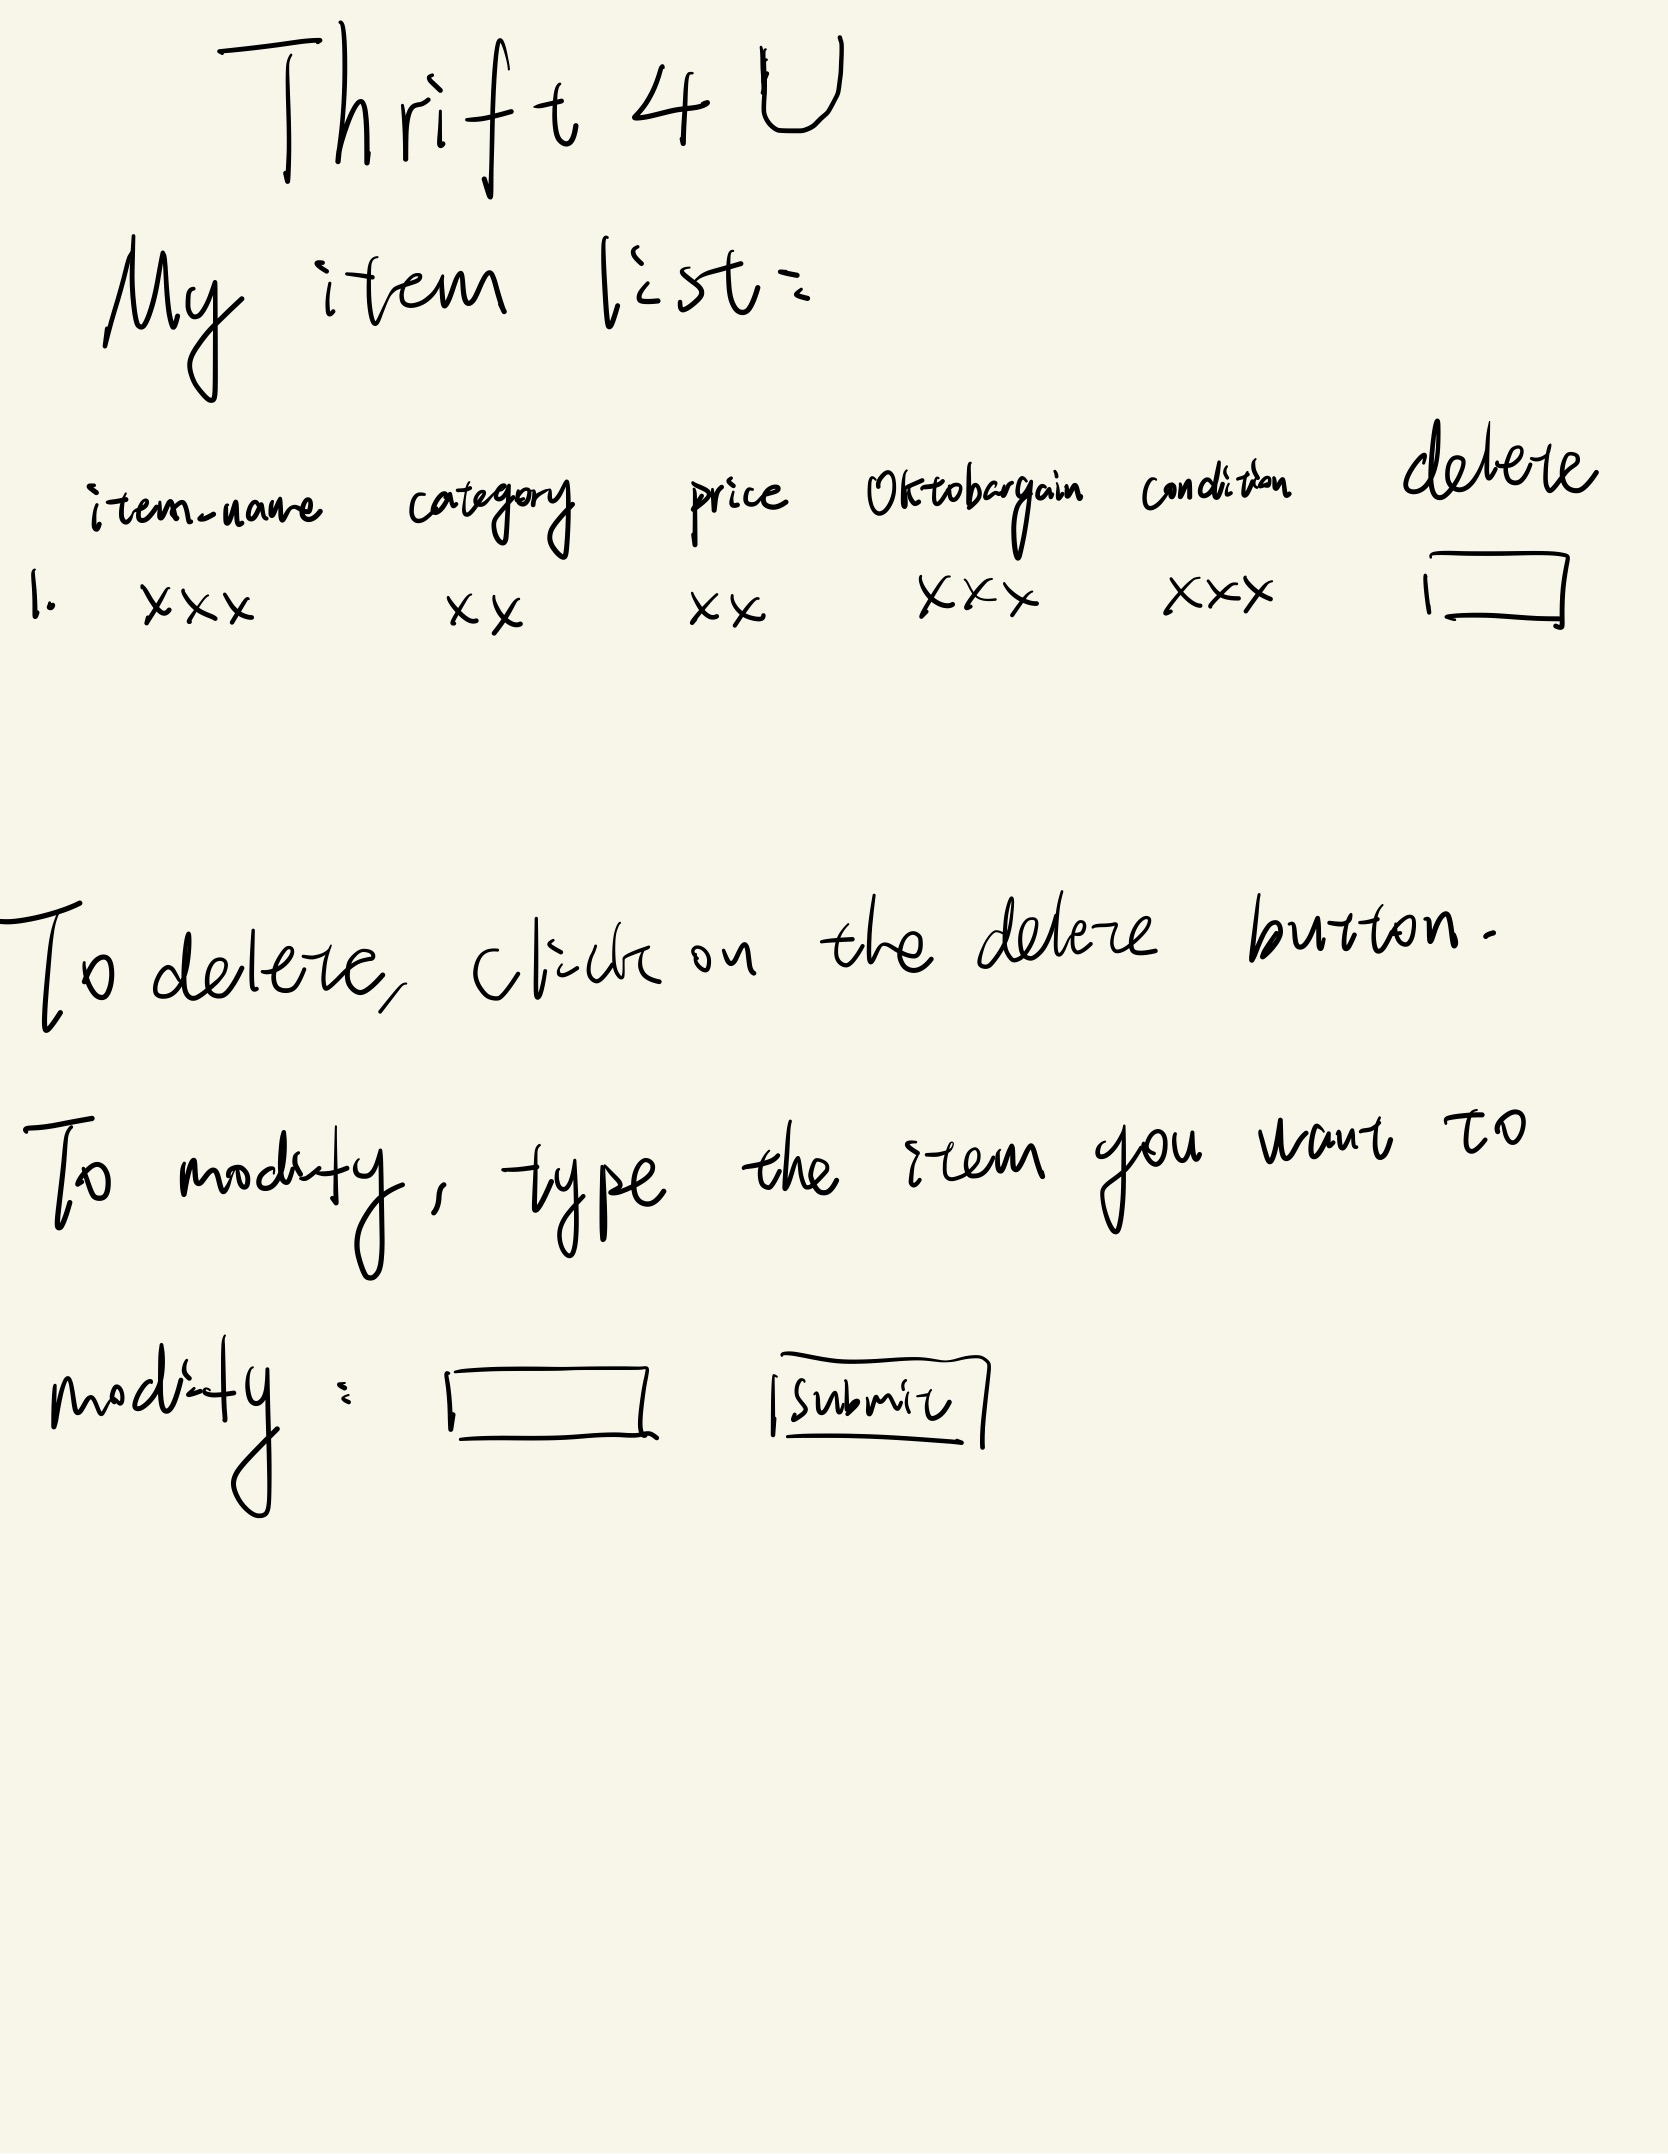 Thrift 4 U
My item list:
item_name category price Oktobargain condition delete
1. xxx xx xx xxx xxx
To delete, click on the delete button.
To modify, type the item you want to
modify : submit